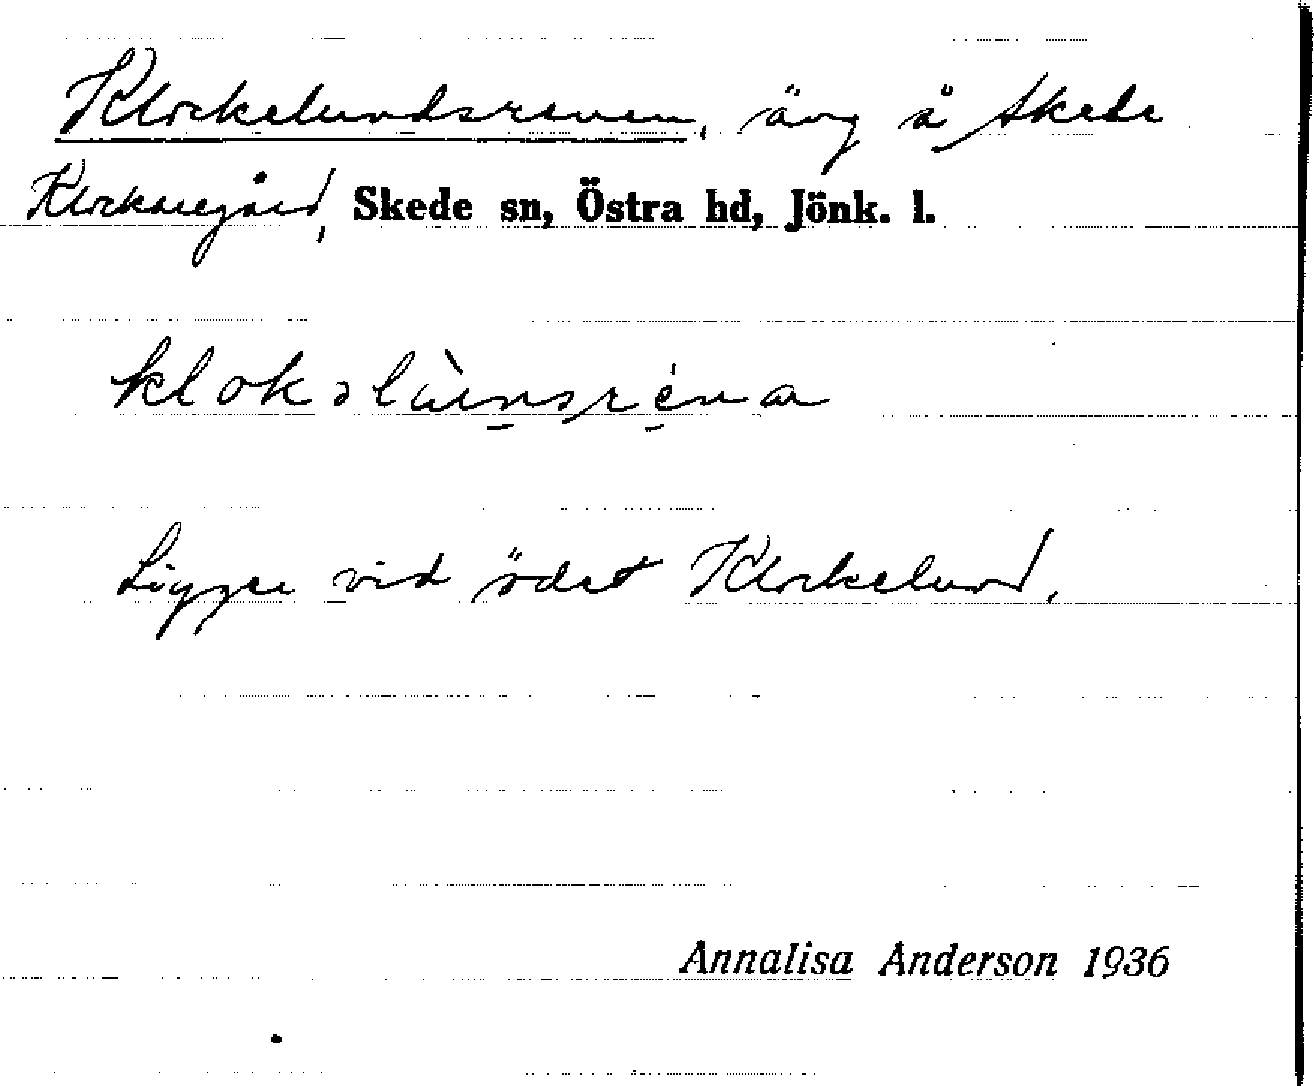 Klockelundsrenen, äng å Skede
Klockaregård, Skede sn, Östra hd, Jönk. l.
Ligger vid ödet Klockelund.
Annalisa Anderson 1936